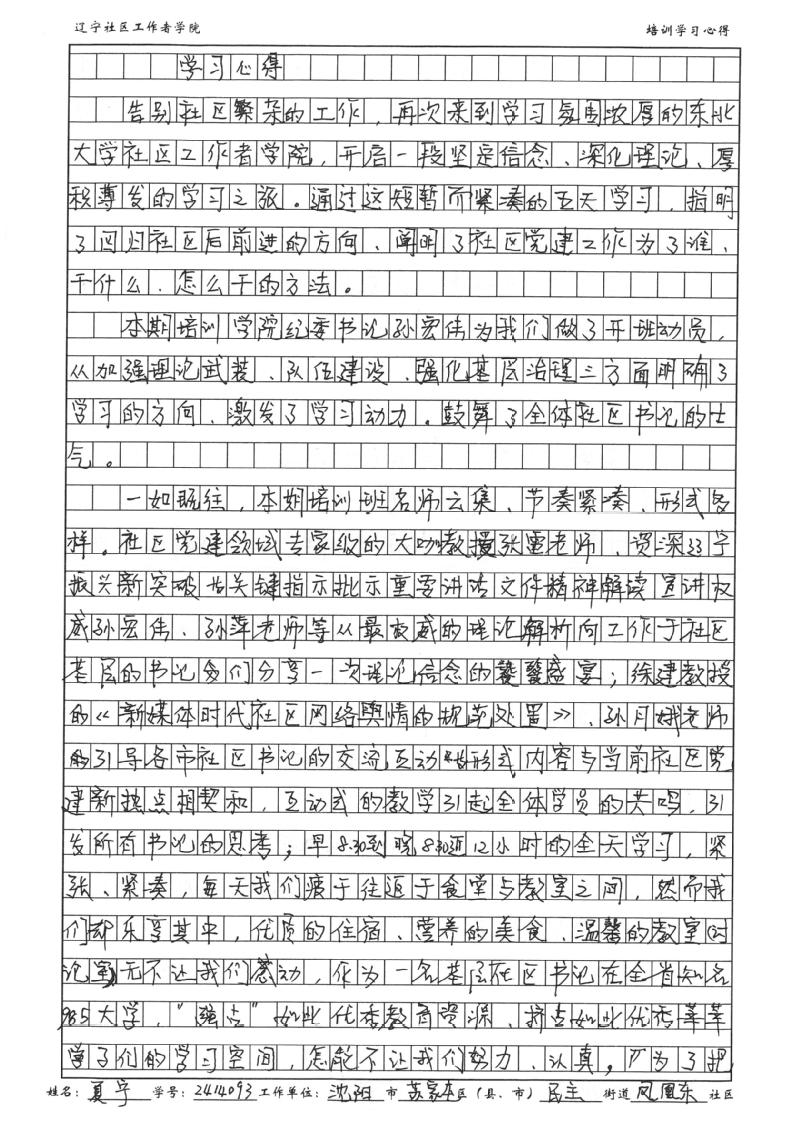 辽宁社区工作者学院 培训学习心得
学习心得
告别社区繁杂的工作，再次来到学习氛围浓厚的东北
大学社区工作者学院，开启一段坚定信念、深化理论、厚
积薄发的学习之旅。通过这短暂而紧凑的五天学习，指明
了回归社区后前进的方向、阐明了社区党建工作为了谁、
干什么、怎么干的方法。
本期培训学院纪委书记孙宏伟为我们做了开班动员，
从加强理论武装、队伍建设、强化基层治理三方面明确了
学习的方向、激发了学习动力。鼓舞了全体社区书记的士
气。
一如既往，本期培训班名师云集、节奏紧凑、形式各
样。社区党建领域专家级的大咖教授张雷老师、资深辽宁
振兴新突破 关键指示批示重要讲话文件精神解读宣讲权
威孙宏伟、孙萍老师等从最权威的理论解析向工作于社区
基层的书记们分享一次理论信念的饕餮盛宴；徐建教授
的《新媒体时代社区网络舆情的规范处置》、孙月娥老师
的引导各市社区书记的交流互动 形式内容与当前社区党
建新热点相契和，互动式的教学引起全体学员的共鸣，引
发所有书记的思考；早8:30到晚8:30近12小时的全天学习，紧
张、紧凑，每天我们疲于往返于食堂与教室之间，然而我
们却乐享其中，优质的住宿、营养的美食、温馨的教室讨
论室无不让我们感动，作为一名基层社区书记在全省知名
985大学，"强占"如此优秀教育资源、挤占如此优秀莘莘
学子们的学习空间，怎能不让我们努力、认真。"为了把
姓名：夏宁 学号：2414093 工作单位：沈阳市苏家屯区（县、市）民主街道凤凰东社区